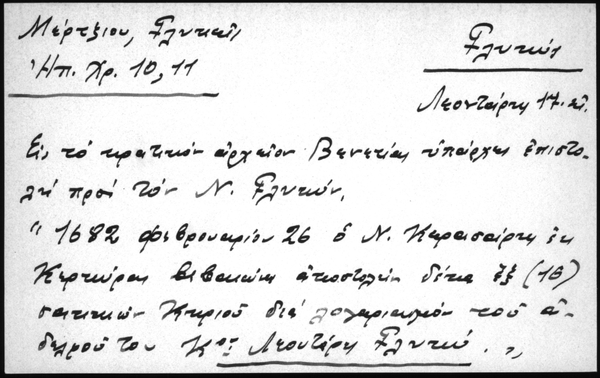 Μέρτζιου, Γλυκεῖς
Γλυκύς
Ἠπ. Χρ. 10, 11
Λεοντάρης 17. αἰ.
Εἰς τό κρατικόν ἀρχεῖον Βενετίας ὑπάρχει ἐπιστο-
λή πρός τόν Ν. Γλυκύν.
" 1682 Φεβρουαρίου 26 ὁ Ν. Καραϊσάρης ἐκ
Κερκύρας βεβαιώνει ἀποστολήν δέκα ἕξ (16)
σακκιῶν Κηριοῦ διά λογαριασμόν τοῦ ἀ-
δελφοῦ του Κου Λεοντάρη Γλυκύ . "